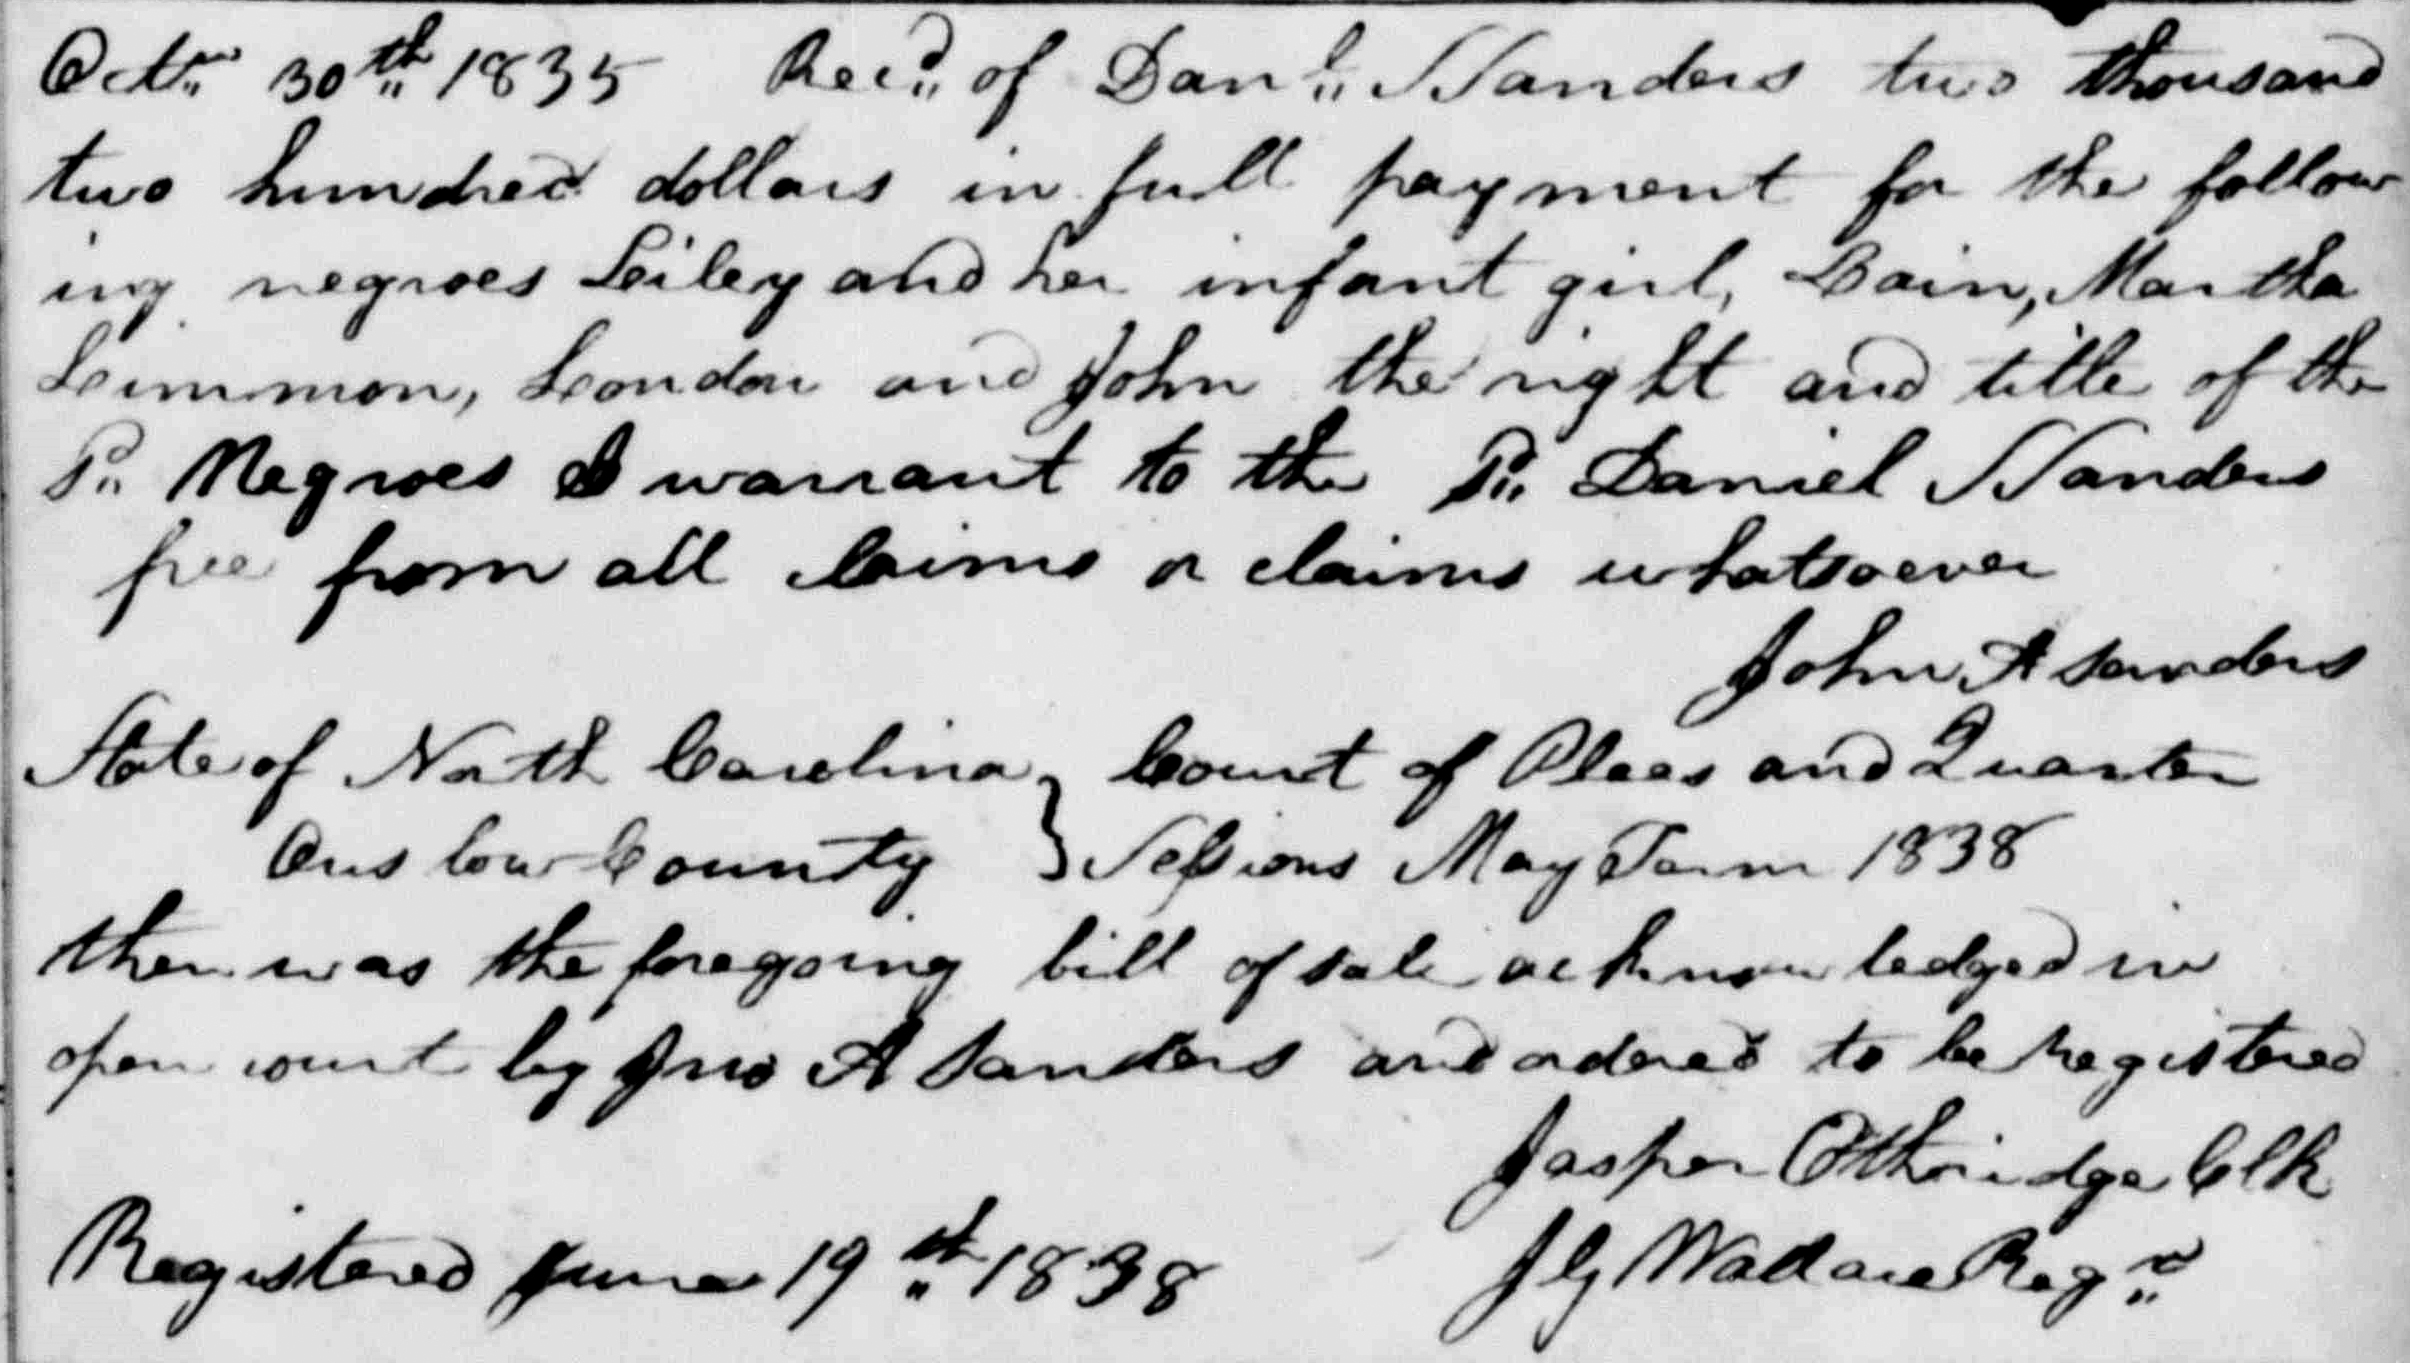 Octr. 30th. 1835 Recd. of Danl. Sanders two thousand
two hundred dollars in full payment for the follow
ing negroes Seiley and her infant girl, Cain, Martha
Simmon, London and John the right and title of the
Sd. Negroes I warrant to the Sd. Daniel Sanders
free from all claims or claims whatsoever
John A Sanders
State of North Carolina } Court of Pleas and Quarter
Onslow County } Sessions May Term 1838
then was the foregoing bill of sale acknowledged in
open court by Jno A Sanders and ordered to be Registered
Jasper Etheridge Clk
Registered June 19th. 1838 J G Wallace Regr.